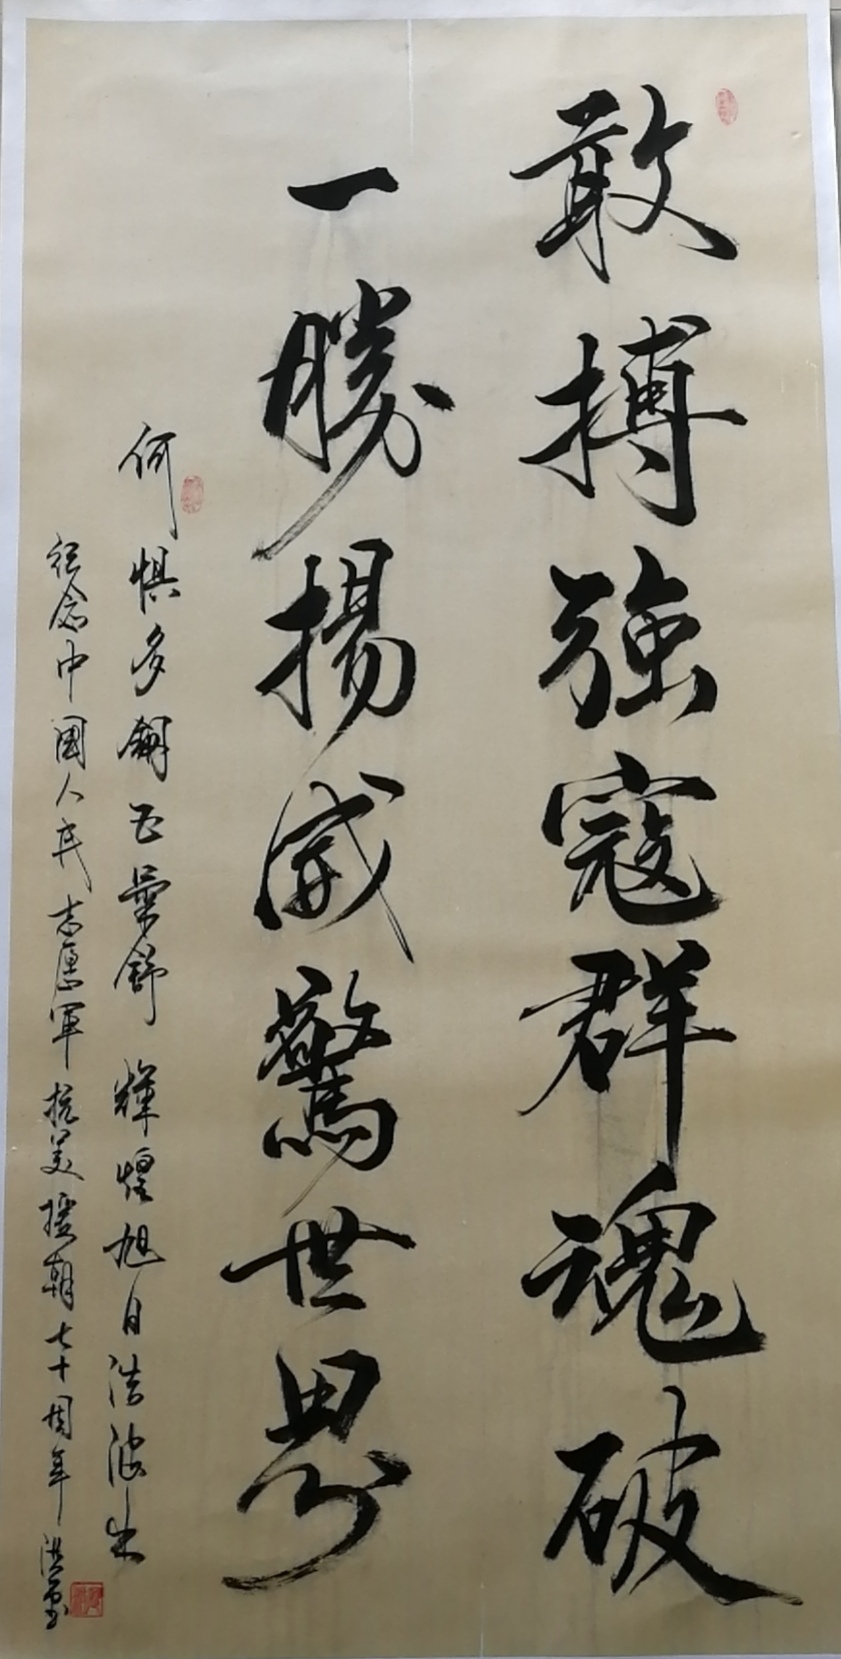 敢搏強寇群魂破
一勝揚威驚世界
何惧多鋼五彙舒 輝煌旭日浩波生
纪念中國人民志愿軍抗美援朝七十周年 洪